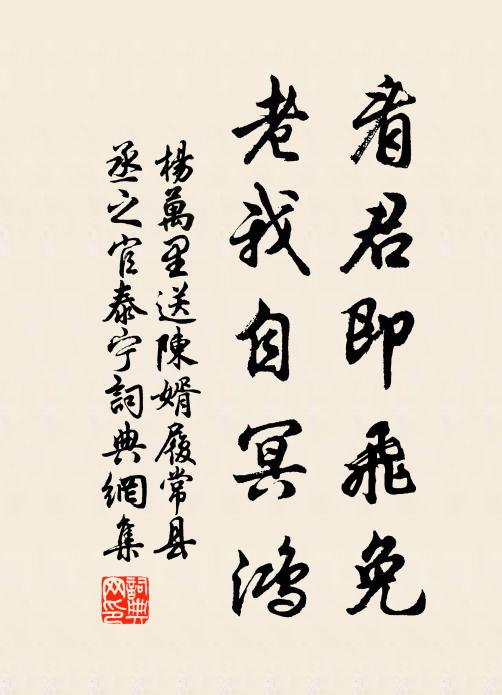 看君即飛免
老我自冥鴻
楊萬里送陳婿履常县
丞之官泰宁詞典網集
詞典网印